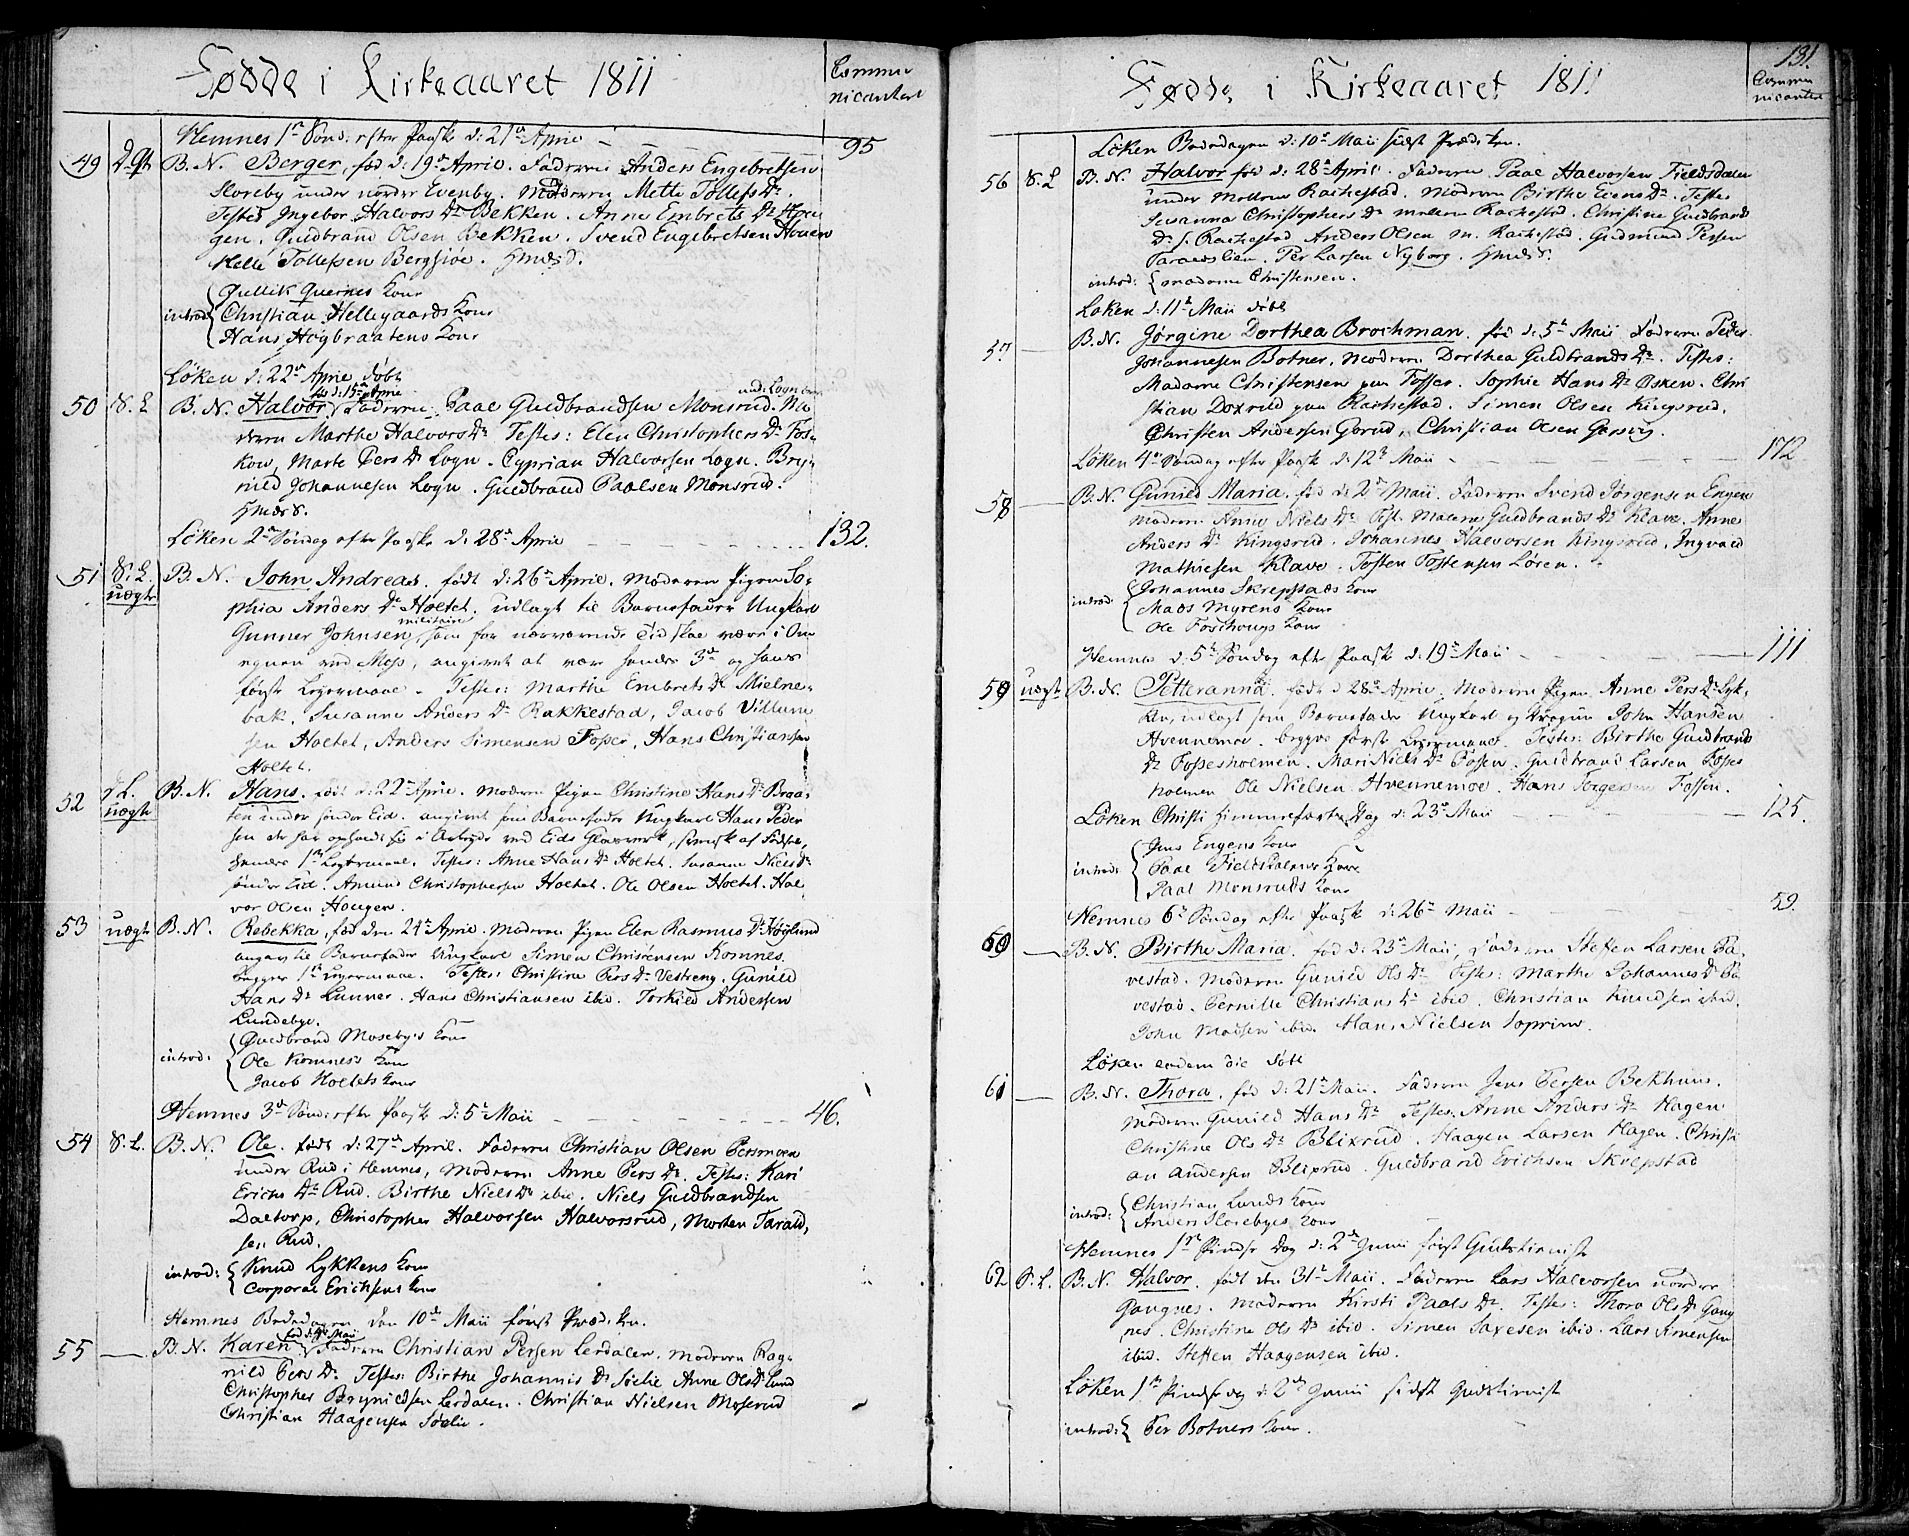 Fødde i Kirkeaaret 1811
Commu
nicanter
Hemnes 1ste Sønd: efter Paask d: 21de April
95
49 B. N. Berger, fød d: 19de April. Faderen Anders Engebretsen
Sloreby under nordre Evenby. Moderen Mette Tollefs Dr.
Testes Ingebor Halvors Dr Bekken. Anne Embrets Dr Hou
gen. Guldbrand Olsen Bekken. Svend Engebretsen Houen
Helle Tollefsen Bergsioe.
introd: Gullik Quernes Kone
Christian Hellegaards Kone
Hans Høgbraatens Kone
Løken d: 22de April døbt
50 S. L. B. N. Halvor fød d: 15de April Faderen Paal Guldbrandsen Monsrud. Mo
deren Marthe Halvors Dr Testes: Elen Christophers Dr Fos
kou, Marte Pers Dr Logn. Cyprian Halvorsen Logn. Bry
nild Johannesen Logn. Guldbrand Paalsen Monsrud.
Løken 2den Søndag efter Paaske d: 28de April
132.
51 S. L. uægte B. N. John Andreas. født d: 26de April. Moderen Pigen So
phia Anders Dr Holtet. udlagt til Barnefader Ungkarl
Gunner Johnsen, militaire som for nærværende Tid skal være i Om
egnen ved Moss, angivet at være hendes 3de og hans
første Leiermaal. Testes: Marthe Embrets Dr Mielne
bak. Susanne Anders Dr Rakkestad, Jacob Villum
sen Holtet, Anders Simensen Fosser, Hans Christiansen
Holtet.
52 uægte B. N. Hans. født d: 22de April. Moderen Pigen Christine Hans Dr Braa
ten under søndre Eid. angivet som Barnefader Ungkarl Hans Peder
sen der har opholdt sig i Arbeide ved Eids Glasværk, svensk af Fødsel,
hendes 1ste Leiermaal. Testes: Anne Hans Dr Holtet. Susanne Niels Dr
søndre Eid. Amund Christophersen Holtet. Ole Olsen Holtet. Hal
vor Olsen Haugen.
53 uægte B. N. Rebekka, fød den 24de April. Moderen Pigen Elen Rasmus Dr Høglund
angav til Barnefader Ungkarl Simen Christensen Komnes.
begges 1ste Leiermaal. Testes: Christine Pers Dr Vestreng. Gunild
Hans Dr Lunner. Hans Christiansen ibid. Torkild Andersen
Lundebye.
introd: Guldbrand Mosebyes Kone
Ole Komness Kone
Jacob Holtets Kone
Hemnes 3de Sønd: efter Paask d: 5te Maii
46.
54 S. L. B. N. Ole. født d: 27de April. Faderen Christian Olsen Persmoen
under Rud i Hemnes, Moderen Anne Pers Dr. Testes: Kari
Erichs Dr Rud. Birthe Niels Dr ibid. Niels Guldbrandsen
Daltorp, Christopher Halvorsen Halvorsrud, Morten Tarald,
sen Rud.
introd: Knud Lykkens Kone
Corporal Erichsens Kone
Hemnes Bededagen den 10de Maii først Prædiken.
55 B. N. Karen Faderen Christian Persen Lerdalen. Moderen Rag
nild Pers Dr. Testes: Birthe Johannis Dr Sølie Anne Ols Dr Lund
Christopher Brynildsen Lerdalen. Christian Nielsen Moserud
Christian Haagensen Sølie.
Fødde i Kirkeaaret 1811
131.
Commu
nicanter
Løken Bededagen d: 10de Maii sidst Prædiken.
56 S. L B. N. Halvor fød d: 28de April. Faderen Paal Halvorsen Fieldsdalen
under mellem Rakkestad. Moderen Birthe Evens Dr. Testes
Susanna Christophers Dr mellem Rakkestad. Christine Guldbrands
Dr s. Rakkestad Anders Olsen m. Rakkestad. Gudmund Persen
Taraldslien. Per Larsen Nyborg.
introd: Madame Christensen.
Løken d: 11te Maii døbt
57 B. N. Jørgine Dorthea Brochman. fød d: 5te Maii Faderen Peder
Johannesen Botner, Moderen Dorthea Guldbrands Dr. Testes:
Madame Christensen paa Fosser. Sophie Hans Dr Asken. Chri
stian Doxrud paa Rakkestad. Simen Olsen Kingsrud.
Christen Andersen Gorud, Christian Olsen Garsvig.
Løken 4de Søndag efter Paask d: 12te Maii
172
58 B. N. Gunild Maria. fød d: 2den Maii. Faderen Svend Jørgensen Engen
Moderen Anne Niels Dr Test. Malene Guldbrands Dr Klave. Anne
Anders Dr Kingsrud. Johannes Halvorsen Kingsrud. Ingvald
Mathiesen Klave. Tosten Tostensen Løren.
introd: Johannes Skrepstads Kone
Mads Myrens Kone
Ole Foshougs Kone
Hemnes d: 5te Søndag efter Paask d: 19de Maii
111
59 uægte B. N. Petteranna. født d: 28de April. Moderen Pigen Anne Pers Dr Lyk,
ken, udlagt som Barnefader Ungkarl og Dragun John Hansen
Hvennemoe. begges første Leiermaal. Testes: Birthe Guldbrands
Dr Fossesholmen. Mari Niels Dr Fossen. Guldbrand Larsen Fosses
holmen Ole Nielsen Hvennemoe. Hans Torgersen Fossen.
Løken Christi Himmelfarts Dag d: 23de Maii
125.
introd: Jens Engens Kone
Paal Fieldsdalens Kone
Paal Monsruds Kone
Hemnes 6te Søndag efter Paask d: 26de Maii
59.
60 B. N. Birthe Maria. fød d: 23de Maii, Faderen Steffen Larsen Ta
vestad. Moderen Gunild Ols Dr Testes: Marthe Johannes Dr Ta
vestad. Pernille Christians Dr ibid. Christian Knudsen ibid.
John Madsen ibid. Hans Nielsen Soprim.
Løken eodem die døbt
61 B. N. Thora, fød d: 21de Maii. Faderen Jens Persen Bekhuus.
Moderen Gunild Hans Dr Testes. Anne Anders Dr Hagen
Christine Ols Dr Blixrud. Haagen Larsen Hagen. Christi
an Andersen Blixrud. Guldbrand Erichsen Skrepstad
introd: Christian Lunds Kone
Anders Slorebyes Kone
Hemnes 1ste Pindse Dag d: 2den Junii først Gudstieniste
62 S. L. B. N. Halvor. født den 31te Maii. Faderen Lars Halvorsen nordre
Gangnes. Moderen Kirsti Paals Dr. Testes: Thora Ols Dr Gang
nes. Christine Ols Dr ibid. Simen Saxesen ibid. Lars Simensen
ibid. Steffen Haagensen ibid.
Løken 1ste Pindsedag d: 2den Junii sidst Gudstieniste
introd: Per Botners Kone.